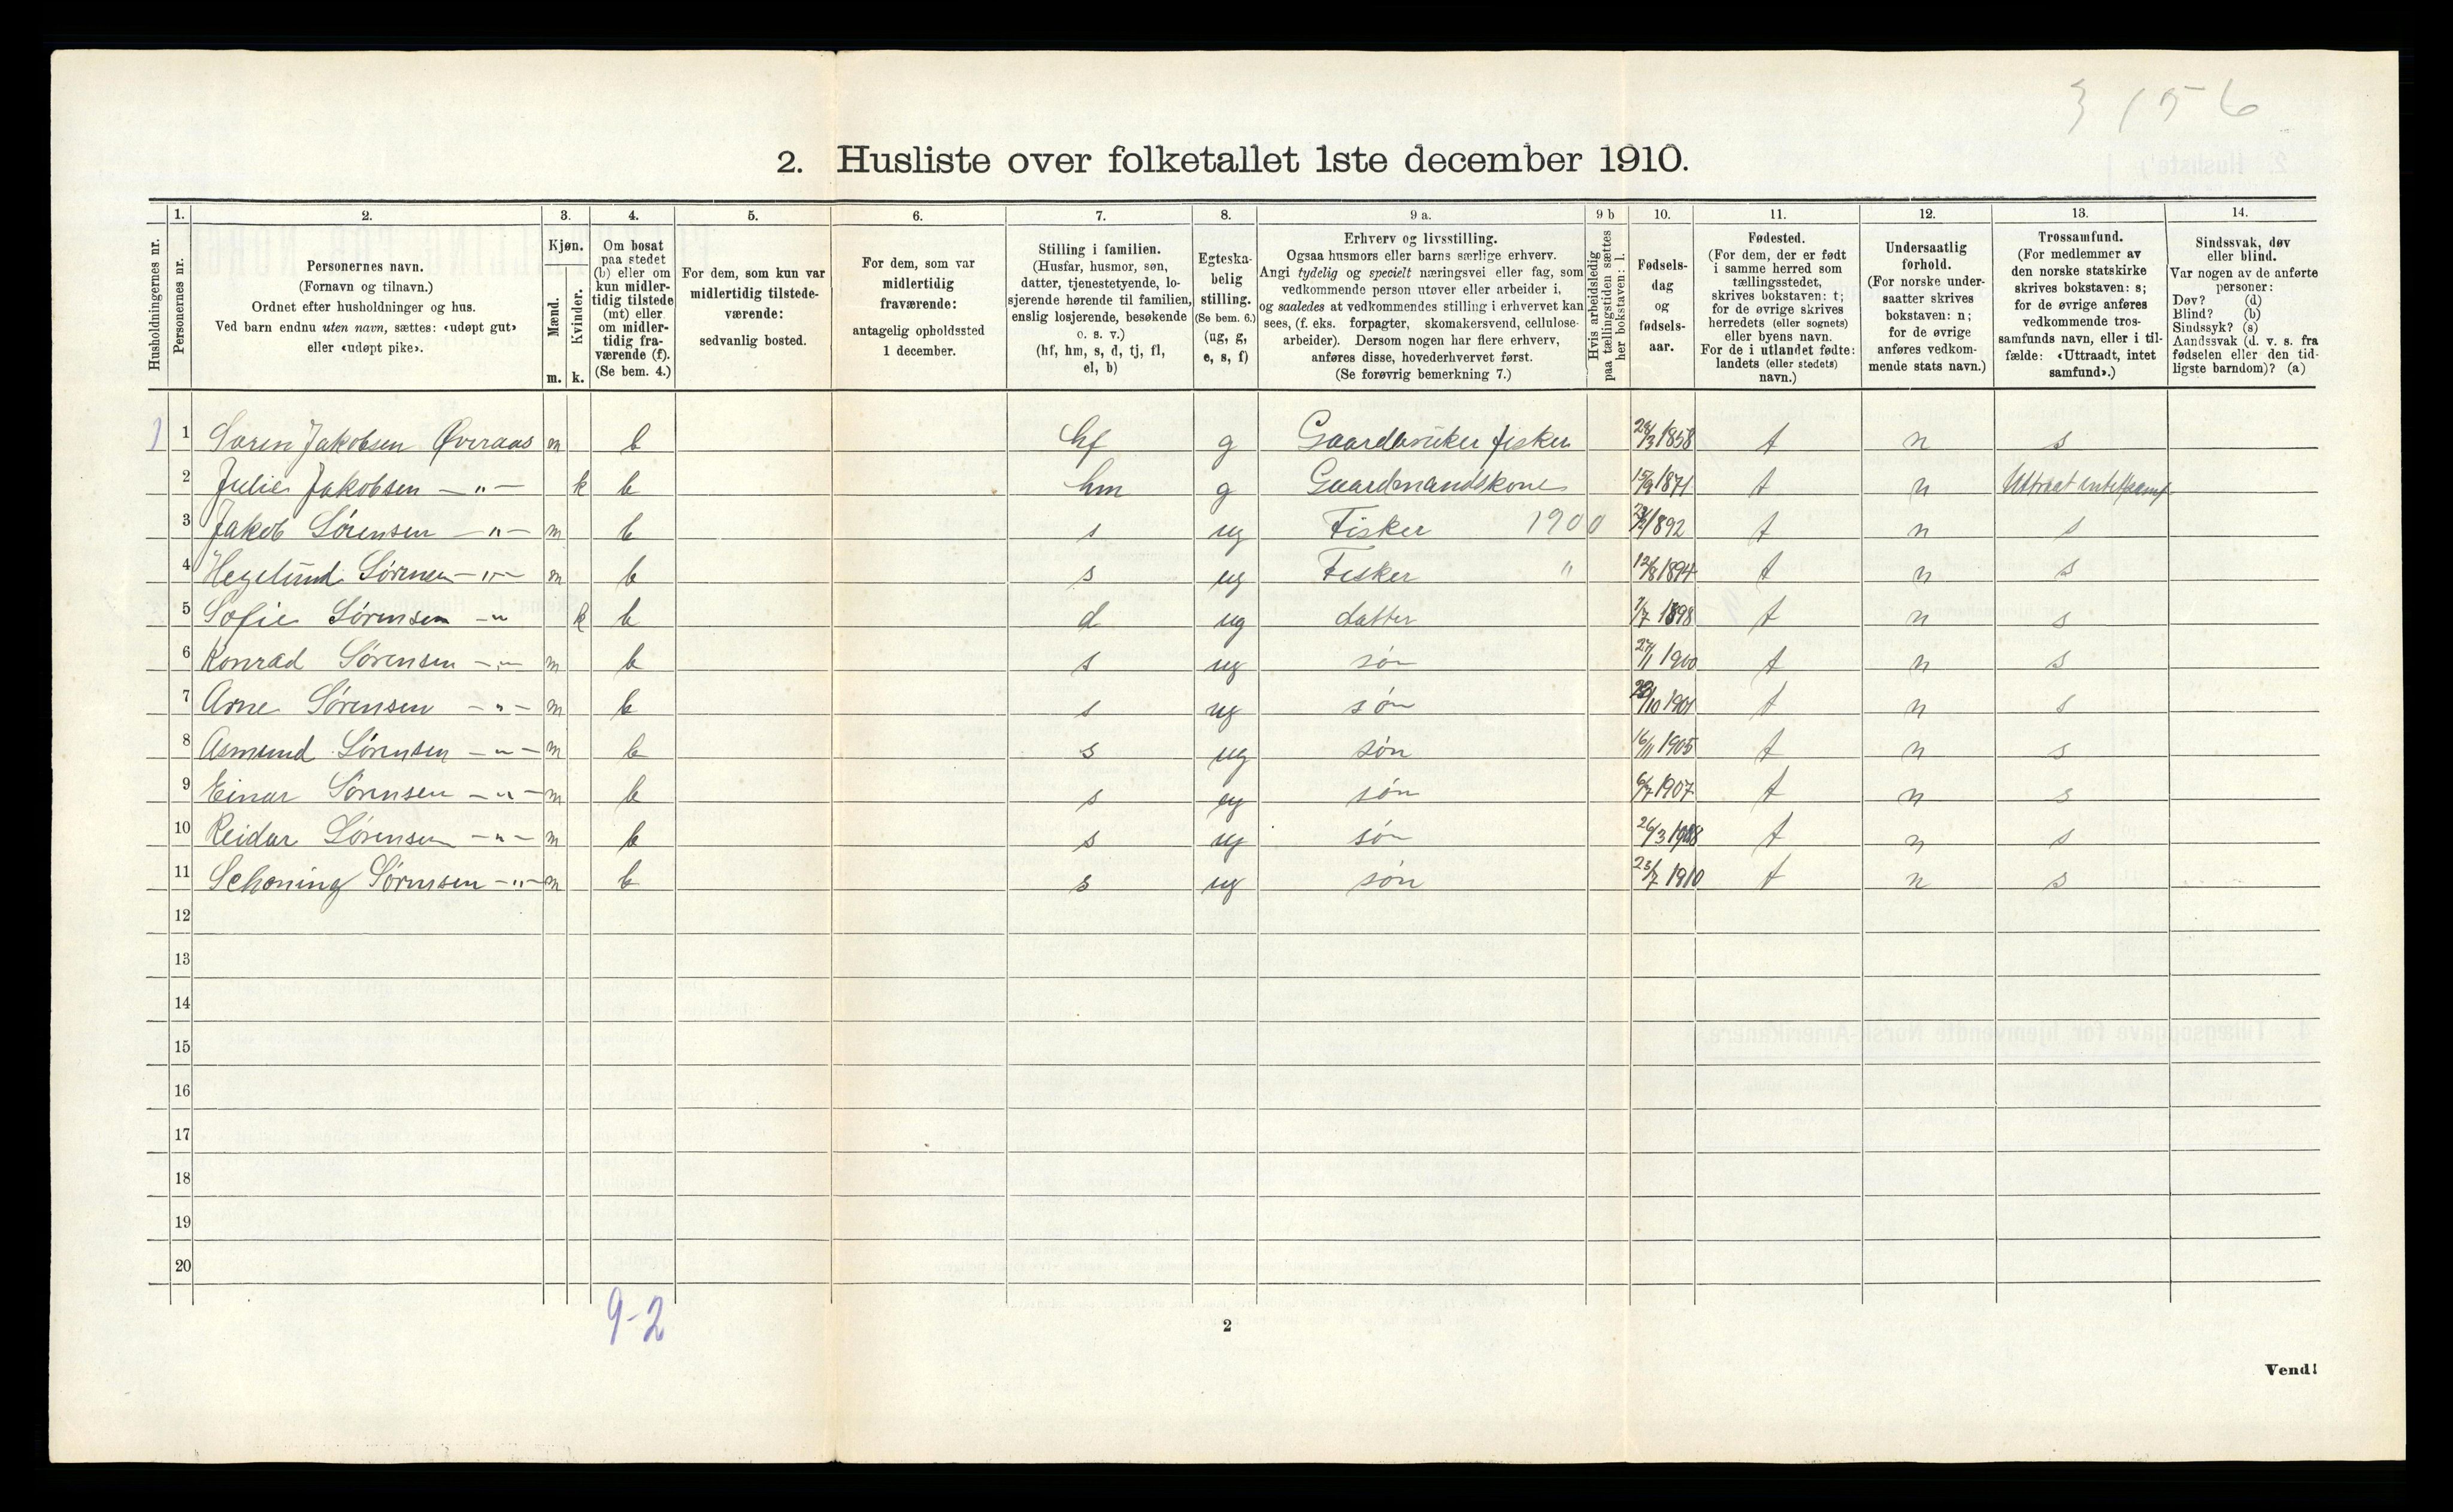 3 156
2. Husliste over folketallet 1ste december 1910.
Husholdningernes nr.
1. Personernes nr.
2. Personernes navn. (Fornavn og tilnavn.) Ordnet efter husholdninger og hus. Ved barn endnu uten navn, sættes: «udøpt gut» eller «udøpt pike».
3. Kjøn. Mænd. m. Kvinder. k.
4. Om bosat paa stedet (b) eller om kun midlertidig tilstede (mt) eller om midlertidig fraværende (f). (Se bem. 4.)
5. For dem, som kun var midlertidig tilstedeværende: sedvanlig bosted.
6. For dem, som var midlertidig fraværende: antagelig opholdssted 1 december.
7. Stilling i familien. (Husfar, husmor, søn, datter, tjenestetyende, losjerende hørende til familien, enslig losjerende, besøkende o. s. v.) (hf, hm, s, d, tj, fl, el, b)
8. Egteskabelig stilling. (Se bem. 6.) (ug, g, e, s, f)
9 a. Erhverv og livsstilling. Ogsaa husmors eller barns særlige erhverv. Angi tydelig og specielt næringsvei eller fag, som vedkommende person utover eller arbeider i, og saaledes at vedkommendes stilling i erhvervet kan sees, (f. eks. forpagter, skomakersvend, cellulosearbeider). Dersom nogen har flere erhverv, anføres disse, hovederhvervet først. (Se forøvrig bemerkning 7.)
9 b Hvis arbeidsledig paa tællingstiden sættes her bokstaven: l.
10. Fødselsdag og fødselsaar.
11. Fødested. (For dem, der er født i samme herred som tællingsstedet, skrives bokstaven: t; for de øvrige skrives herredets (eller sognets) eller byens navn. For de i utlandet fødte: landets (eller stedets) navn.)
12. Undersaatlig forhold. (For norske undersaatter skrives bokstaven: n; for de øvrige anføres vedkommende stats navn.)
13. Trossamfund. (For medlemmer av den norske statskirke skrives bokstaven: s; for de øvrige anføres vedkommende trossamfunds navn, eller i tilfælde: «Uttraadt, intet samfund».)
14. Sindssvak, døv eller blind. Var nogen av de anførte personer: Døv? (d) Blind? (b) Sindssyk? (s) Aandssvak (d. v. s. fra fødselen eller den tidligste barndom)? (a)
1 1 Søren Jakobsen Øveraas m b hf g Gaardbruker fisker 1858 t n s
2 Julie Jakobsen —"— k b hm g Gaardmandskone 15/9 1871 t n Uttraat intet samf
3 Jakob Sørensen —"— m b s ug Fisker 1900 1892 t n s
4 Hegelund Sørensen —"— m b s ug Fisker " 12/8 1894 t n s
5 Sofie Sørensen —" k b d ug datter 1/7 1898 t n s
6 Konrad Sørensen —"— m b s ug søn 27/11 1900 t n s
7 Arne Sørensen —"— m b s ug søn /10 1901 t n s
8 Asmund Sørensen —"— m b s ug søn 16/11 1905 t n s
9 Einar Sørensen —"— m b s ug søn 6/7 1907 t n s
10 Reidar Sørensen —"— m b s ug søn 26/3 1908 t n s
11 Schøning Sørensen —"— m b s ug søn 23/7 1910 t n s
12
13
14
15
16
17
18
19
20
9-2
2
Vend!